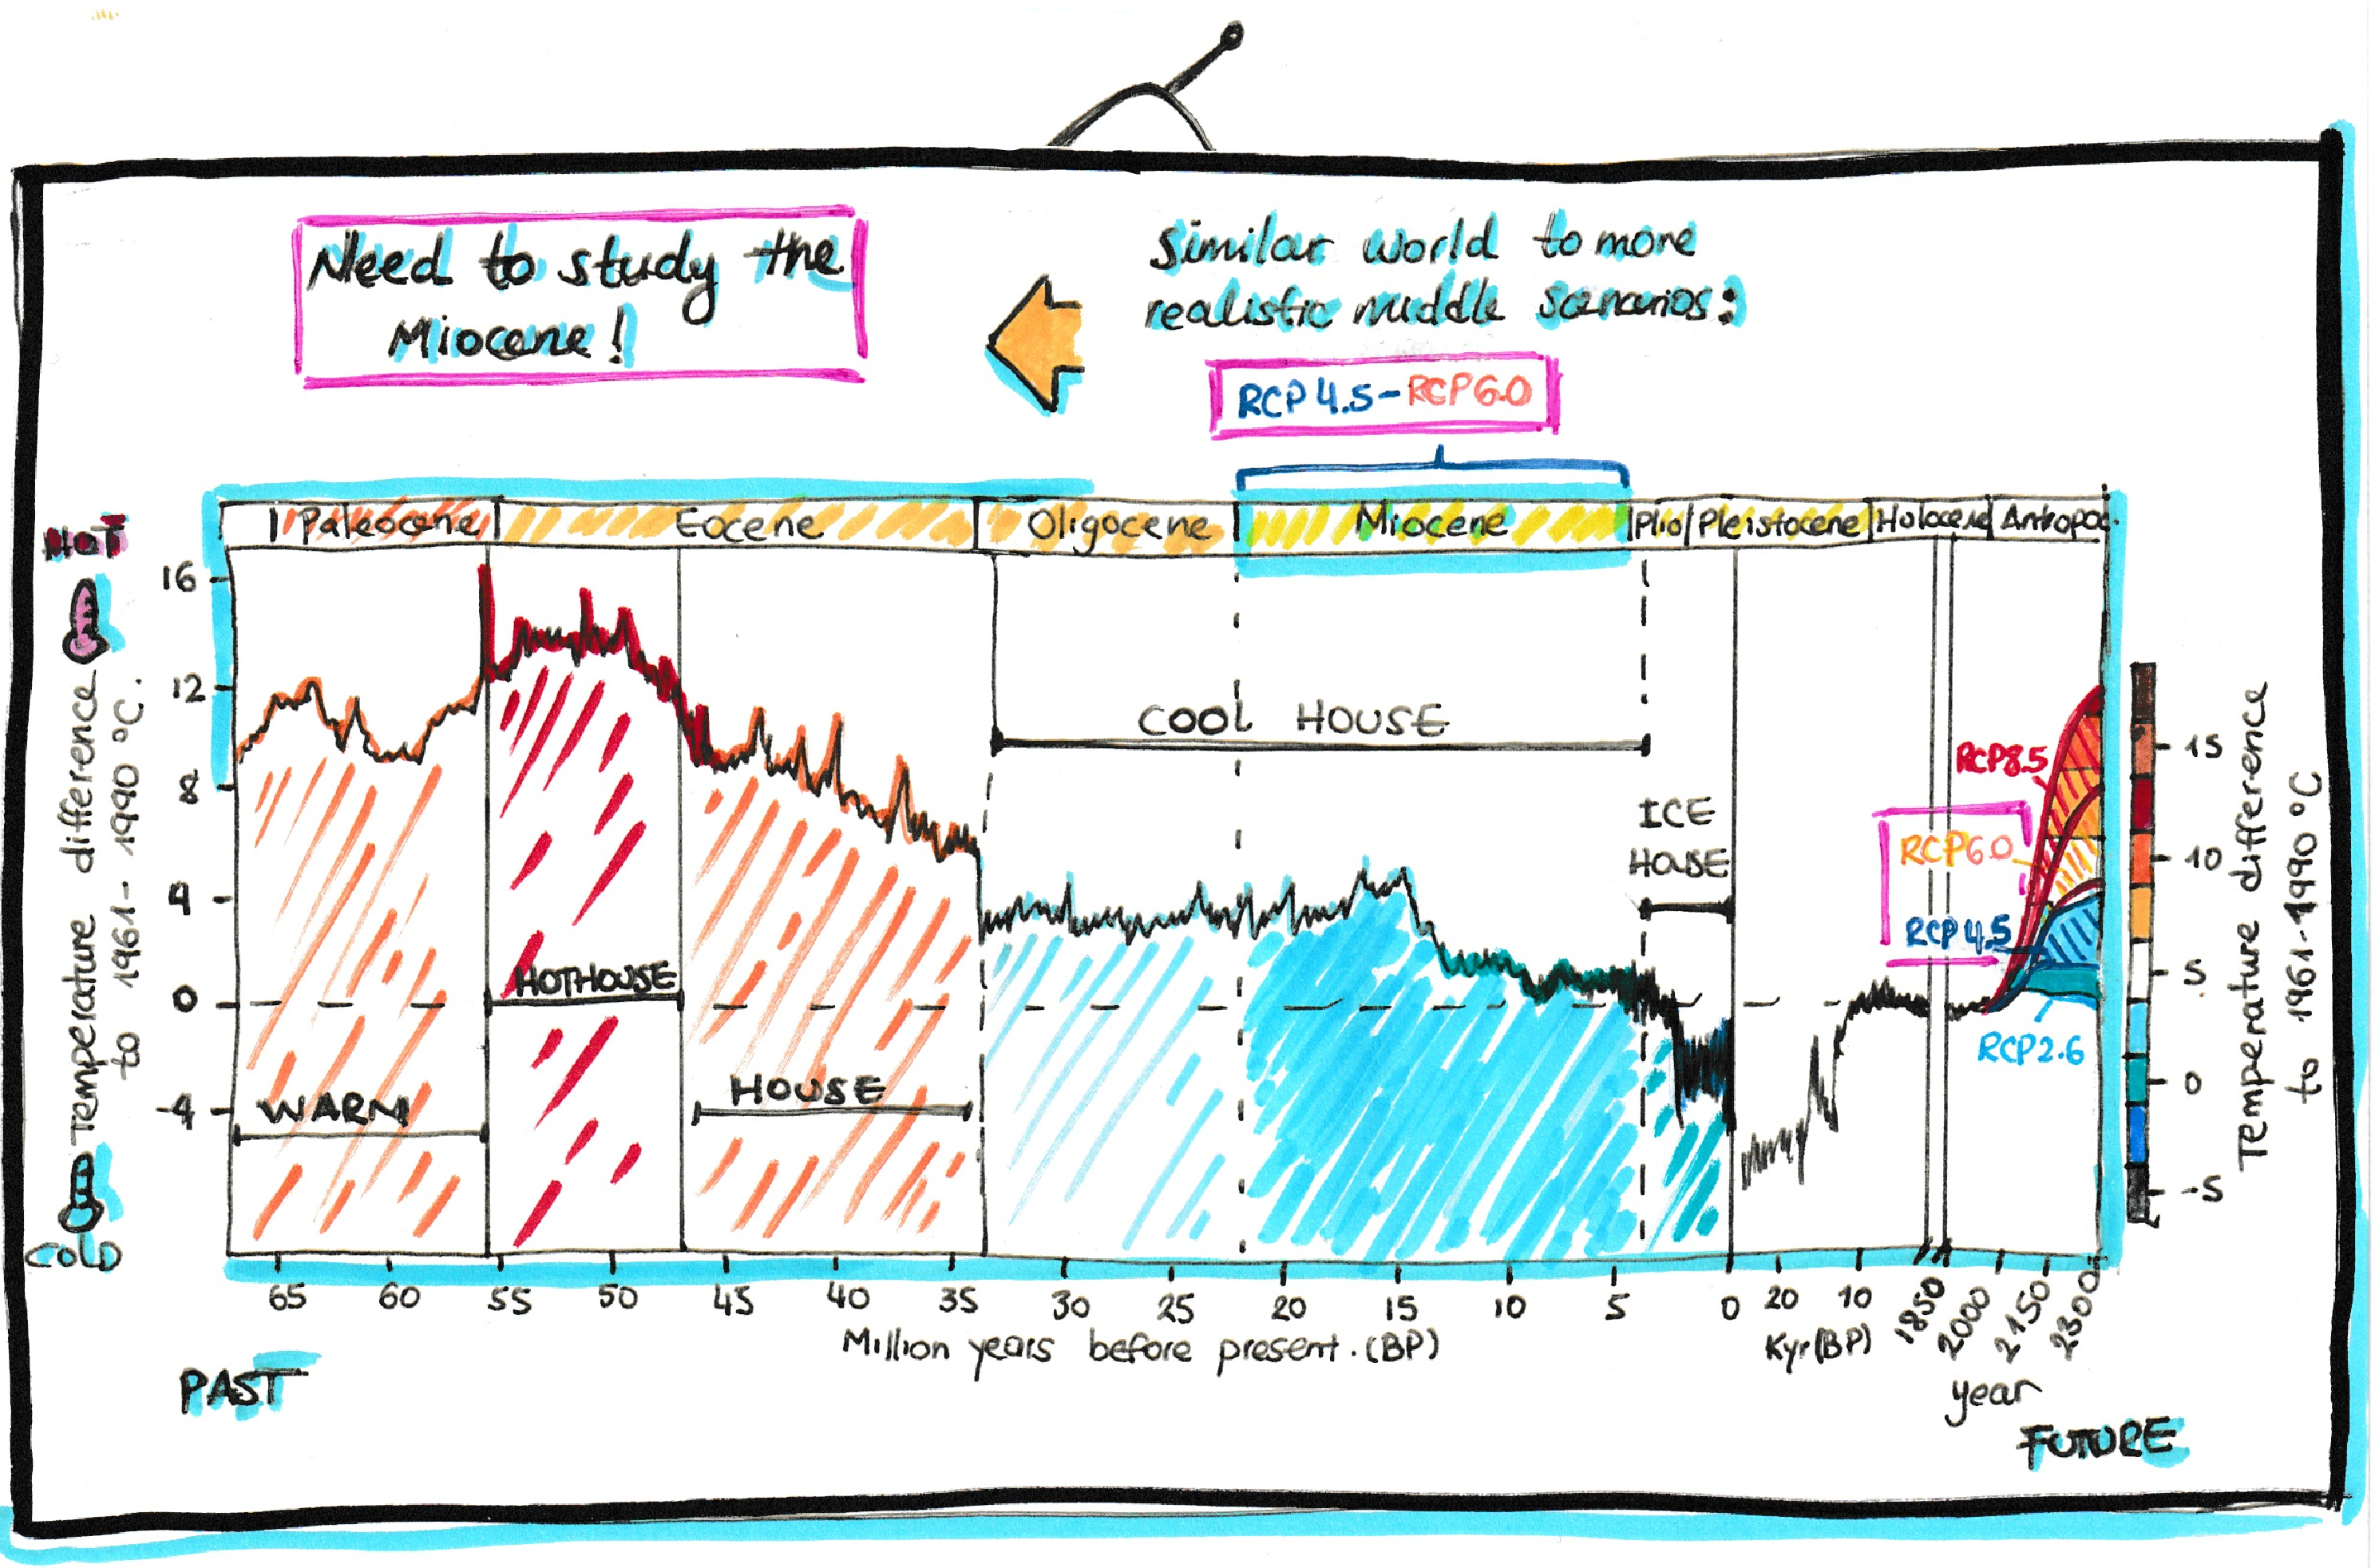 Need to study the
Miocene!
Similar world to more
realistic middle scenarios:
RCP 4.5 - RCP 6.0
Paleocene
Eocene
Oligocene
Miocene
Plio
Pleistocene
Holocene
Antropoc.
HOT
COLD
Temperature difference
to 1961-1990 °C.
16
12
8
4
0
-4
WARM
HOTHOUSE
HOUSE
COOL HOUSE
ICE
HOUSE
RCP8.5
RCP6.0
RCP4.5
RCP2.6
15
10
5
0
-5
Temperature difference
to 1961-1990 °C
65 60 55 50 45 40 35 30 25 20 15 10 5 0 20 10 1850 2000 2150 2300
Million years before present. (BP)
Kyr(BP)
year
PAST
FUTURE